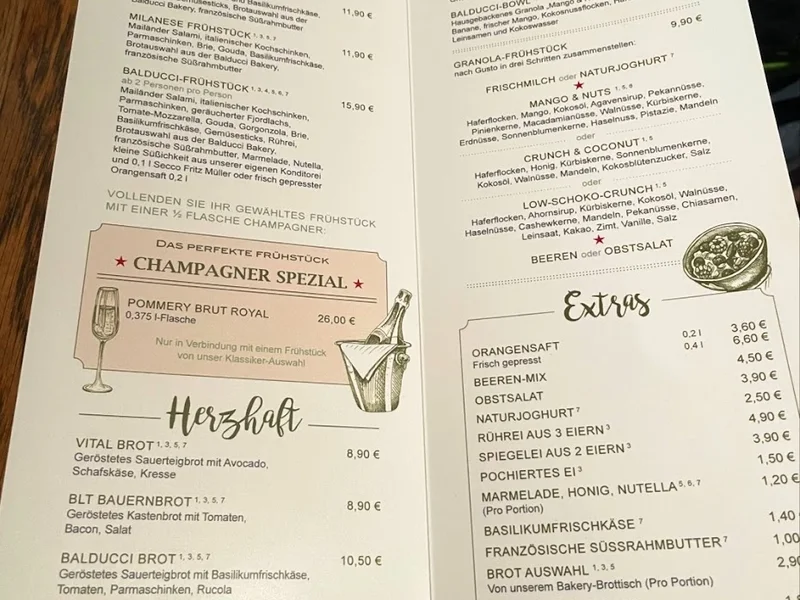 Gemüsesticks, Brotauswahl aus der
Balducci Bakery, französische Süßrahmbutter
11,90 €
MILANESE FRÜHSTÜCK 1, 3, 5, 7
Mailänder Salami, italienischer Kochschinken,
Parmaschinken, Brie, Gouda, Basilikumfrischkäse,
Brotauswahl aus der Balducci Bakery,
französische Süßrahmbutter
11,90 €
BALDUCCI-FRÜHSTÜCK 1, 3, 4, 5, 6, 7
ab 2 Personen pro Person
Mailänder Salami, italienischer Kochschinken,
Parmaschinken, geräucherter Fjordlachs,
Tomate-Mozzarella, Gouda, Gorgonzola, Brie,
Basilikumfrischkäse, Gemüsesticks, Rührei,
Brotauswahl aus der Balducci Bakery,
französische Süßrahmbutter, Marmelade, Nutella,
kleine Süßigkeit aus unserer eigenen Konditorei
und 0,1 l Secco Fritz Müller oder frisch gepresster
Orangensaft 0,2 l
15,90 €
VOLLENDEN SIE IHR GEWÄHLTES FRÜHSTÜCK
MIT EINER ½ FLASCHE CHAMPAGNER:
DAS PERFEKTE FRÜHSTÜCK
CHAMPAGNER SPEZIAL
POMMERY BRUT ROYAL
0,375 l-Flasche
26,00 €
Nur in Verbindung mit einem Frühstück
von unser Klassiker-Auswahl
Herzhaft
VITAL BROT 1, 3, 5, 7
8,90 €
Geröstetes Sauerteigbrot mit Avocado,
Schafskäse, Kresse
BLT BAUERNBROT 1, 3, 5, 7
8,90 €
Geröstetes Kastenbrot mit Tomaten,
Bacon, Salat
BALDUCCI BROT 1, 3, 5, 7
10,50 €
Geröstetes Sauerteigbrot mit Basilikumfrischkäse,
Tomaten, Parmaschinken, Rucola
BALDUCCI-BOWL
Hausgebackenes Granola
Banane, frischer Mango, Kokosnussflocken,
Leinsamen und Kokoswasser
9,90 €
GRANOLA-FRÜHSTÜCK
nach Gusto in drei Schritten zusammenstellen:
FRISCHMILCH oder NATURJOGHURT 7
MANGO & NUTS 1, 5, 6
Haferflocken, Mango, Kokosöl, Agavensirup, Pekannüsse,
Pinienkerne, Macadamianüsse, Walnüsse, Kürbiskerne,
Erdnüsse, Sonnenblumenkerne, Haselnuss, Pistazie, Mandeln
oder
CRUNCH & COCONUT 1, 5
Haferflocken, Honig, Kürbiskerne, Sonnenblumenkerne,
Kokosöl, Walnüsse, Mandeln, Kokosblütenzucker, Salz
oder
LOW-SCHOKO-CRUNCH 1, 5
Haferflocken, Ahornsirup, Kürbiskerne, Kokosöl, Walnüsse,
Haselnüsse, Cashewkerne, Mandeln, Pekanüsse, Chiasamen,
Leinsaat, Kakao, Zimt, Vanille, Salz
BEEREN oder OBSTSALAT
Extras
ORANGENSAFT 0,2 l 3,60 €
Frisch gepresst 0,4 l 6,60 €
BEEREN-MIX 4,50 €
OBSTSALAT 3,90 €
NATURJOGHURT 7 2,50 €
RÜHREI AUS 3 EIERN 3 4,90 €
SPIEGELEI AUS 2 EIERN 3 3,90 €
POCHIERTES EI 3 1,50 €
MARMELADE, HONIG, NUTELLA 5, 6, 7 1,20 €
(Pro Portion)
BASILIKUMFRISCHKÄSE 7 1,40
FRANZÖSISCHE SÜSSRAHMBUTTER 7 1,00
BROT AUSWAHL 1, 3, 5 2,90
Von unserem Bakery-Brottisch (Pro Portion)